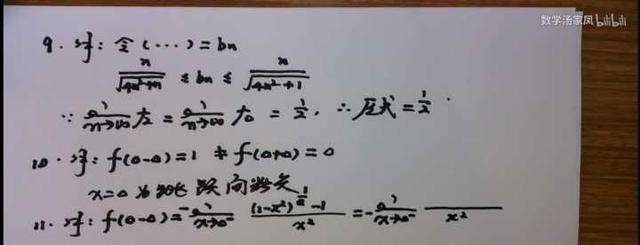 数学汤家凤 bilibili
9. 解: 令(···) = bn
n/√(4n²+n) ≤ bn ≤ n/√(4n²+1)
∵ lim n→∞ 左 = lim n→∞ 右 = 1/2, ∴ 原式 = 1/2.
10. 解: f(0-0) = 1 ≠ f(0+0) = 0
x=0 为跳跃间断点
11. 解: f(0-0) = -lim x→0⁻ ((1-x²)^ -1)/x² = -lim x→0⁻ /x²